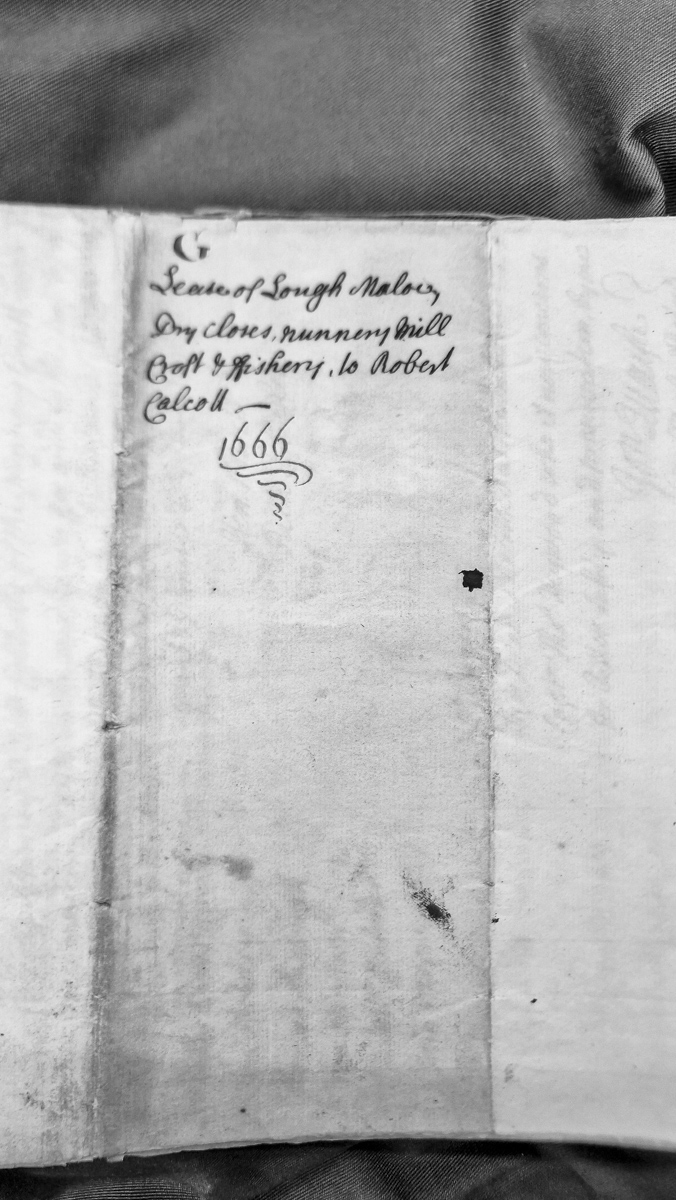 G
Lease of Lough Malow,
Dry closes, nunnery Mill
Croft & ffishery, to Robert
Calcott —
1666